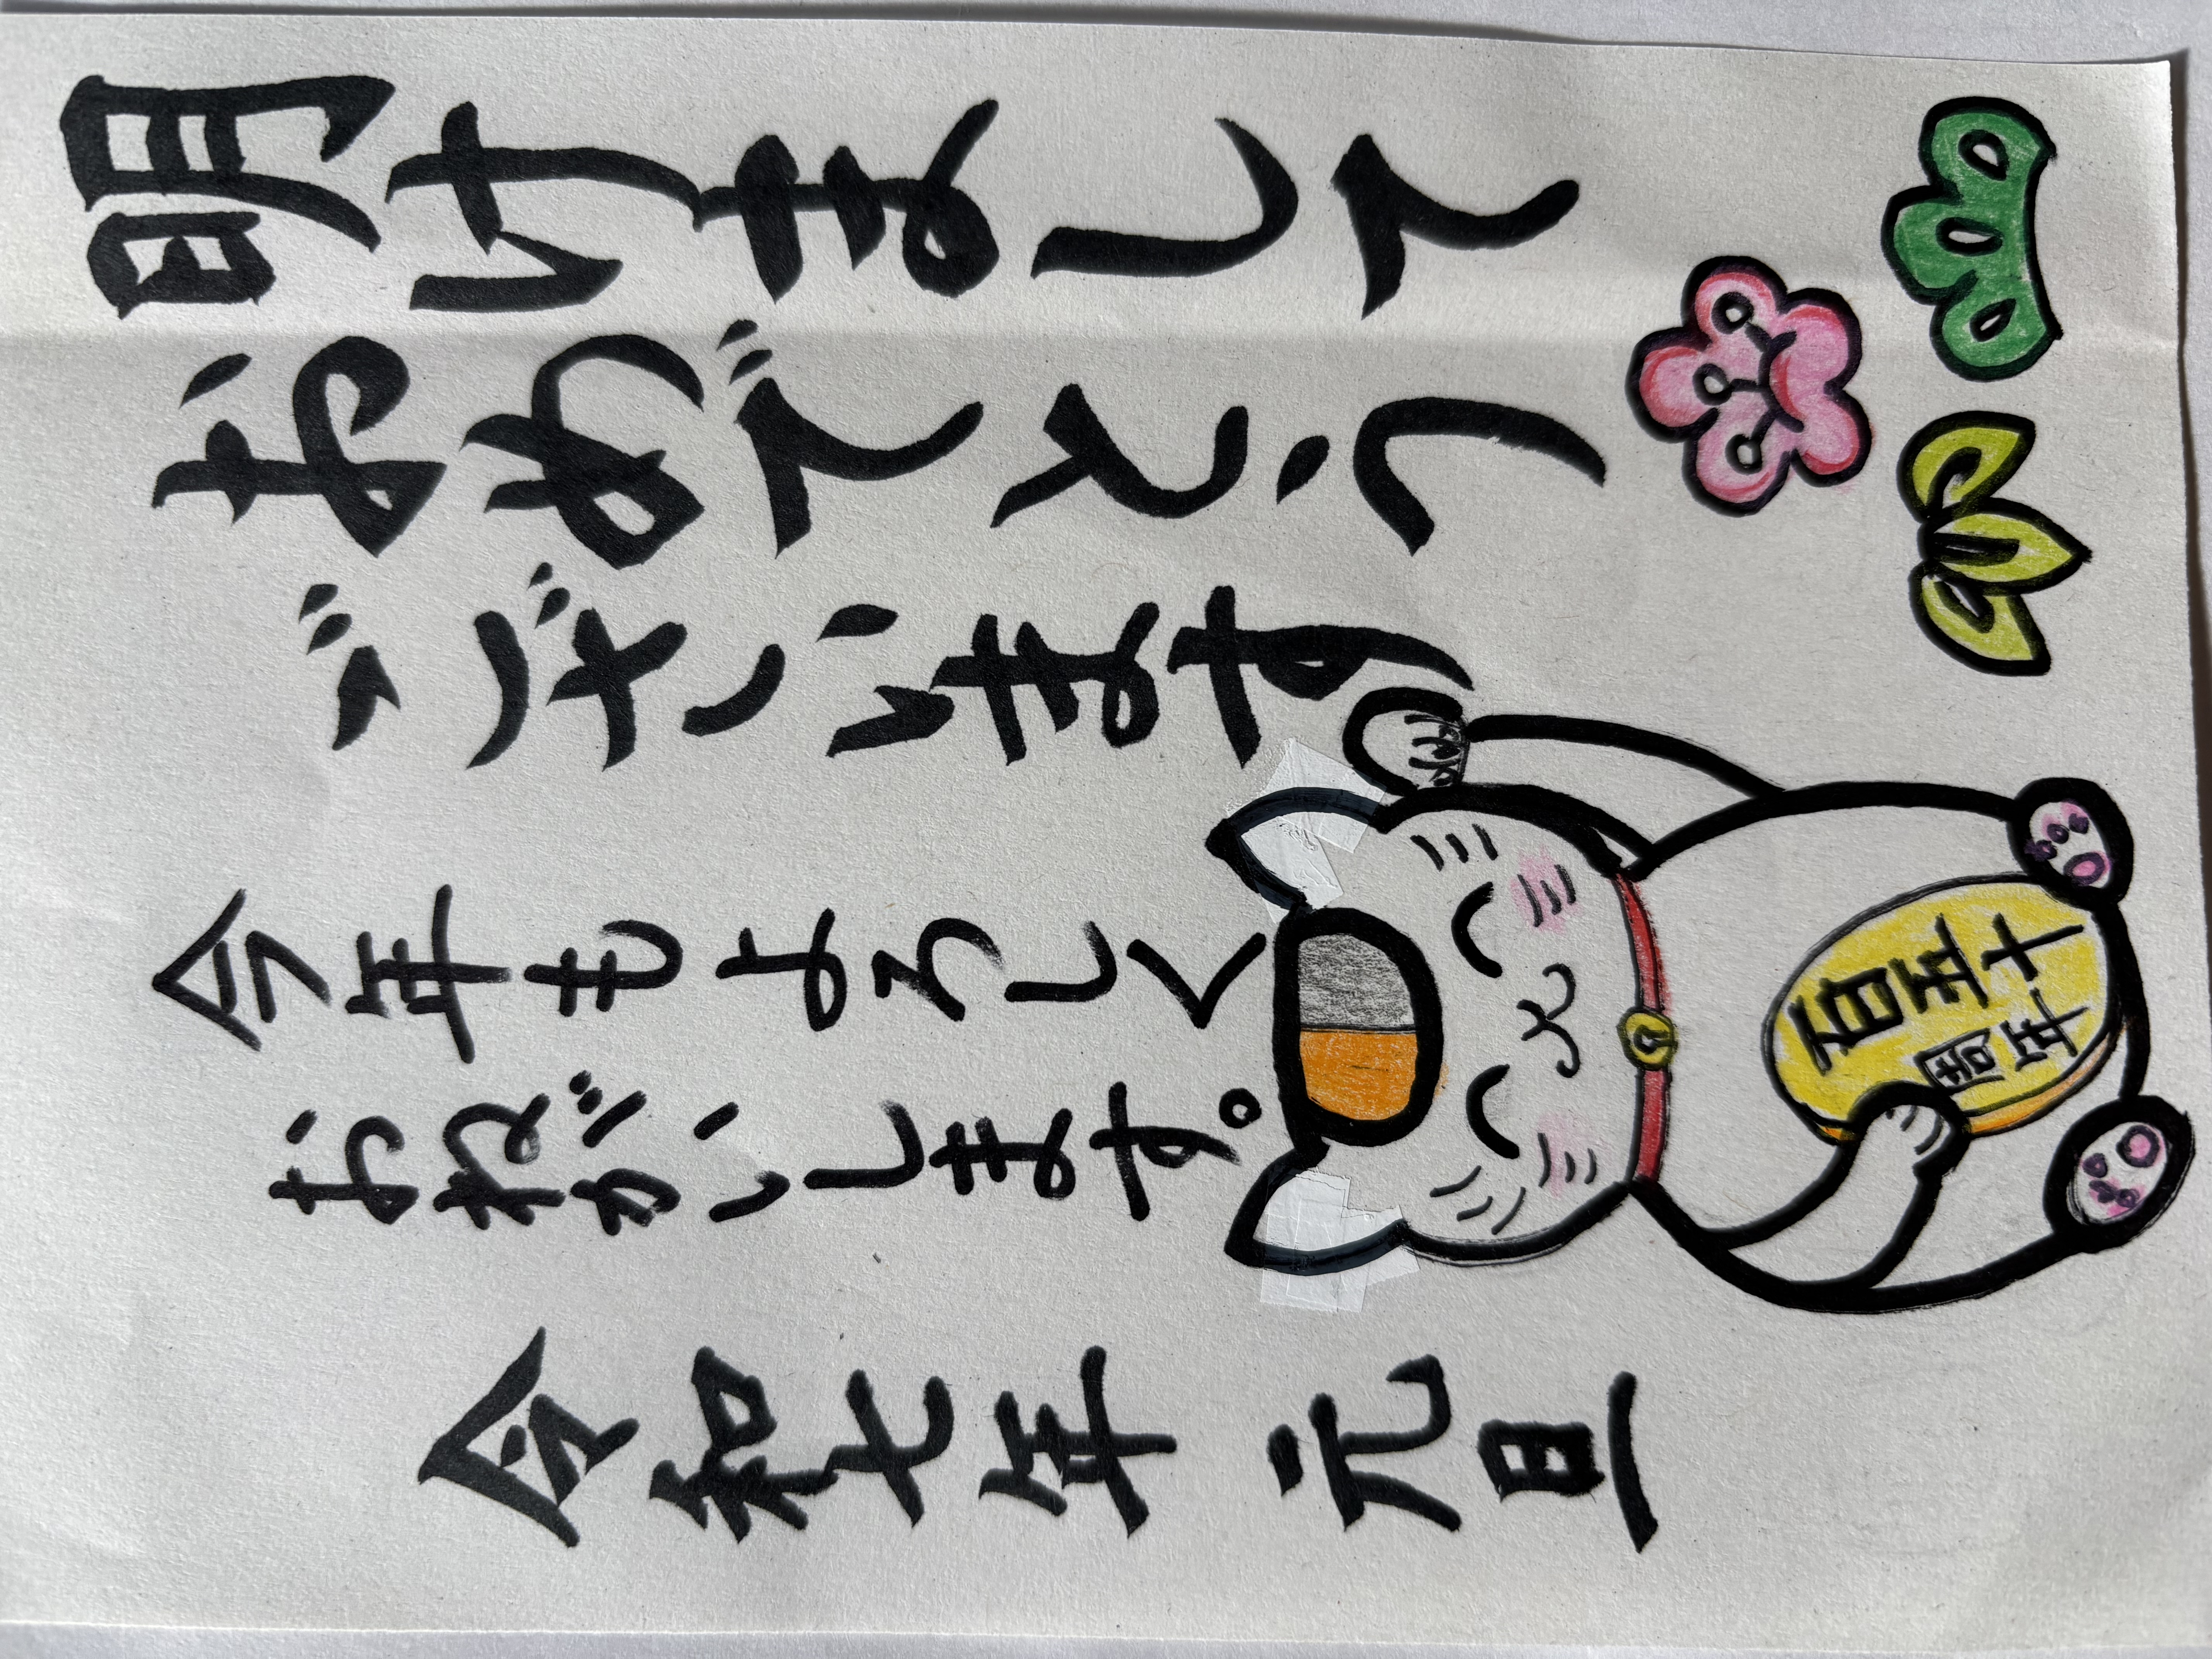 明けまして
おめでとう
ございます
今年もよろしく
おねがいします。
令和七年 元旦
百五十
周年